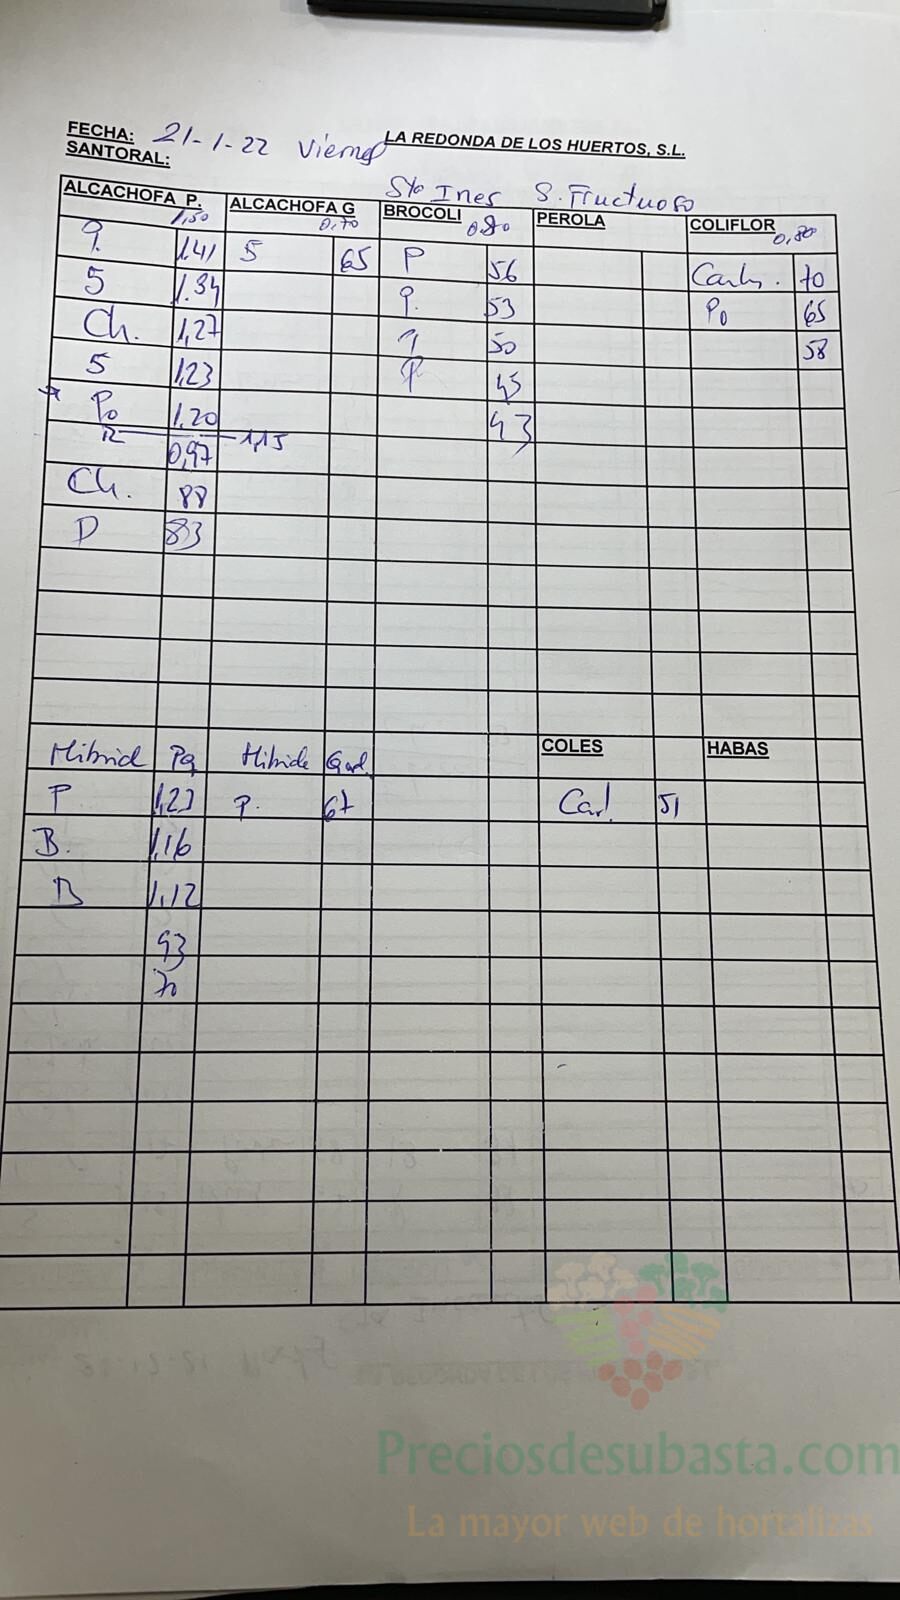 FECHA: 21-1-22 Viernes LA REDONDA DE LOS HUERTOS, S.L.
SANTORAL: Sta Ines S. Fructuoso
ALCACHOFA P. 1,50 ALCACHOFA G 0,70 BROCOLI PEROLA COLIFLOR 0,80
P. 1,41 5 65 P 56 Carls. 70
5 1,34 P. 53 Po 65
Ch. 1,27 50 58
5 1,23 P 45
Po 1,20 43
R 0,97 1,15
Ch. 88
D 83
Hibrid Pq Hibride Gord. COLES HABAS
P 1,23 P. 67 Carl. 51
B. 1,16
B 1,12
93
70
Preciosdesubasta.com
La mayor web de hortalizas